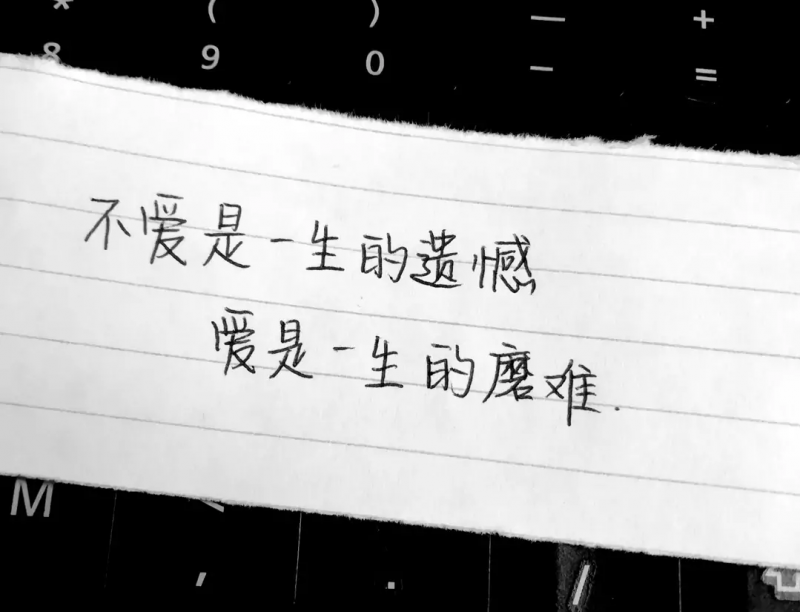 * ( ) — +
8 9 0 − =
不爱是一生的遗憾
爱是一生的磨难.
M <
, . /